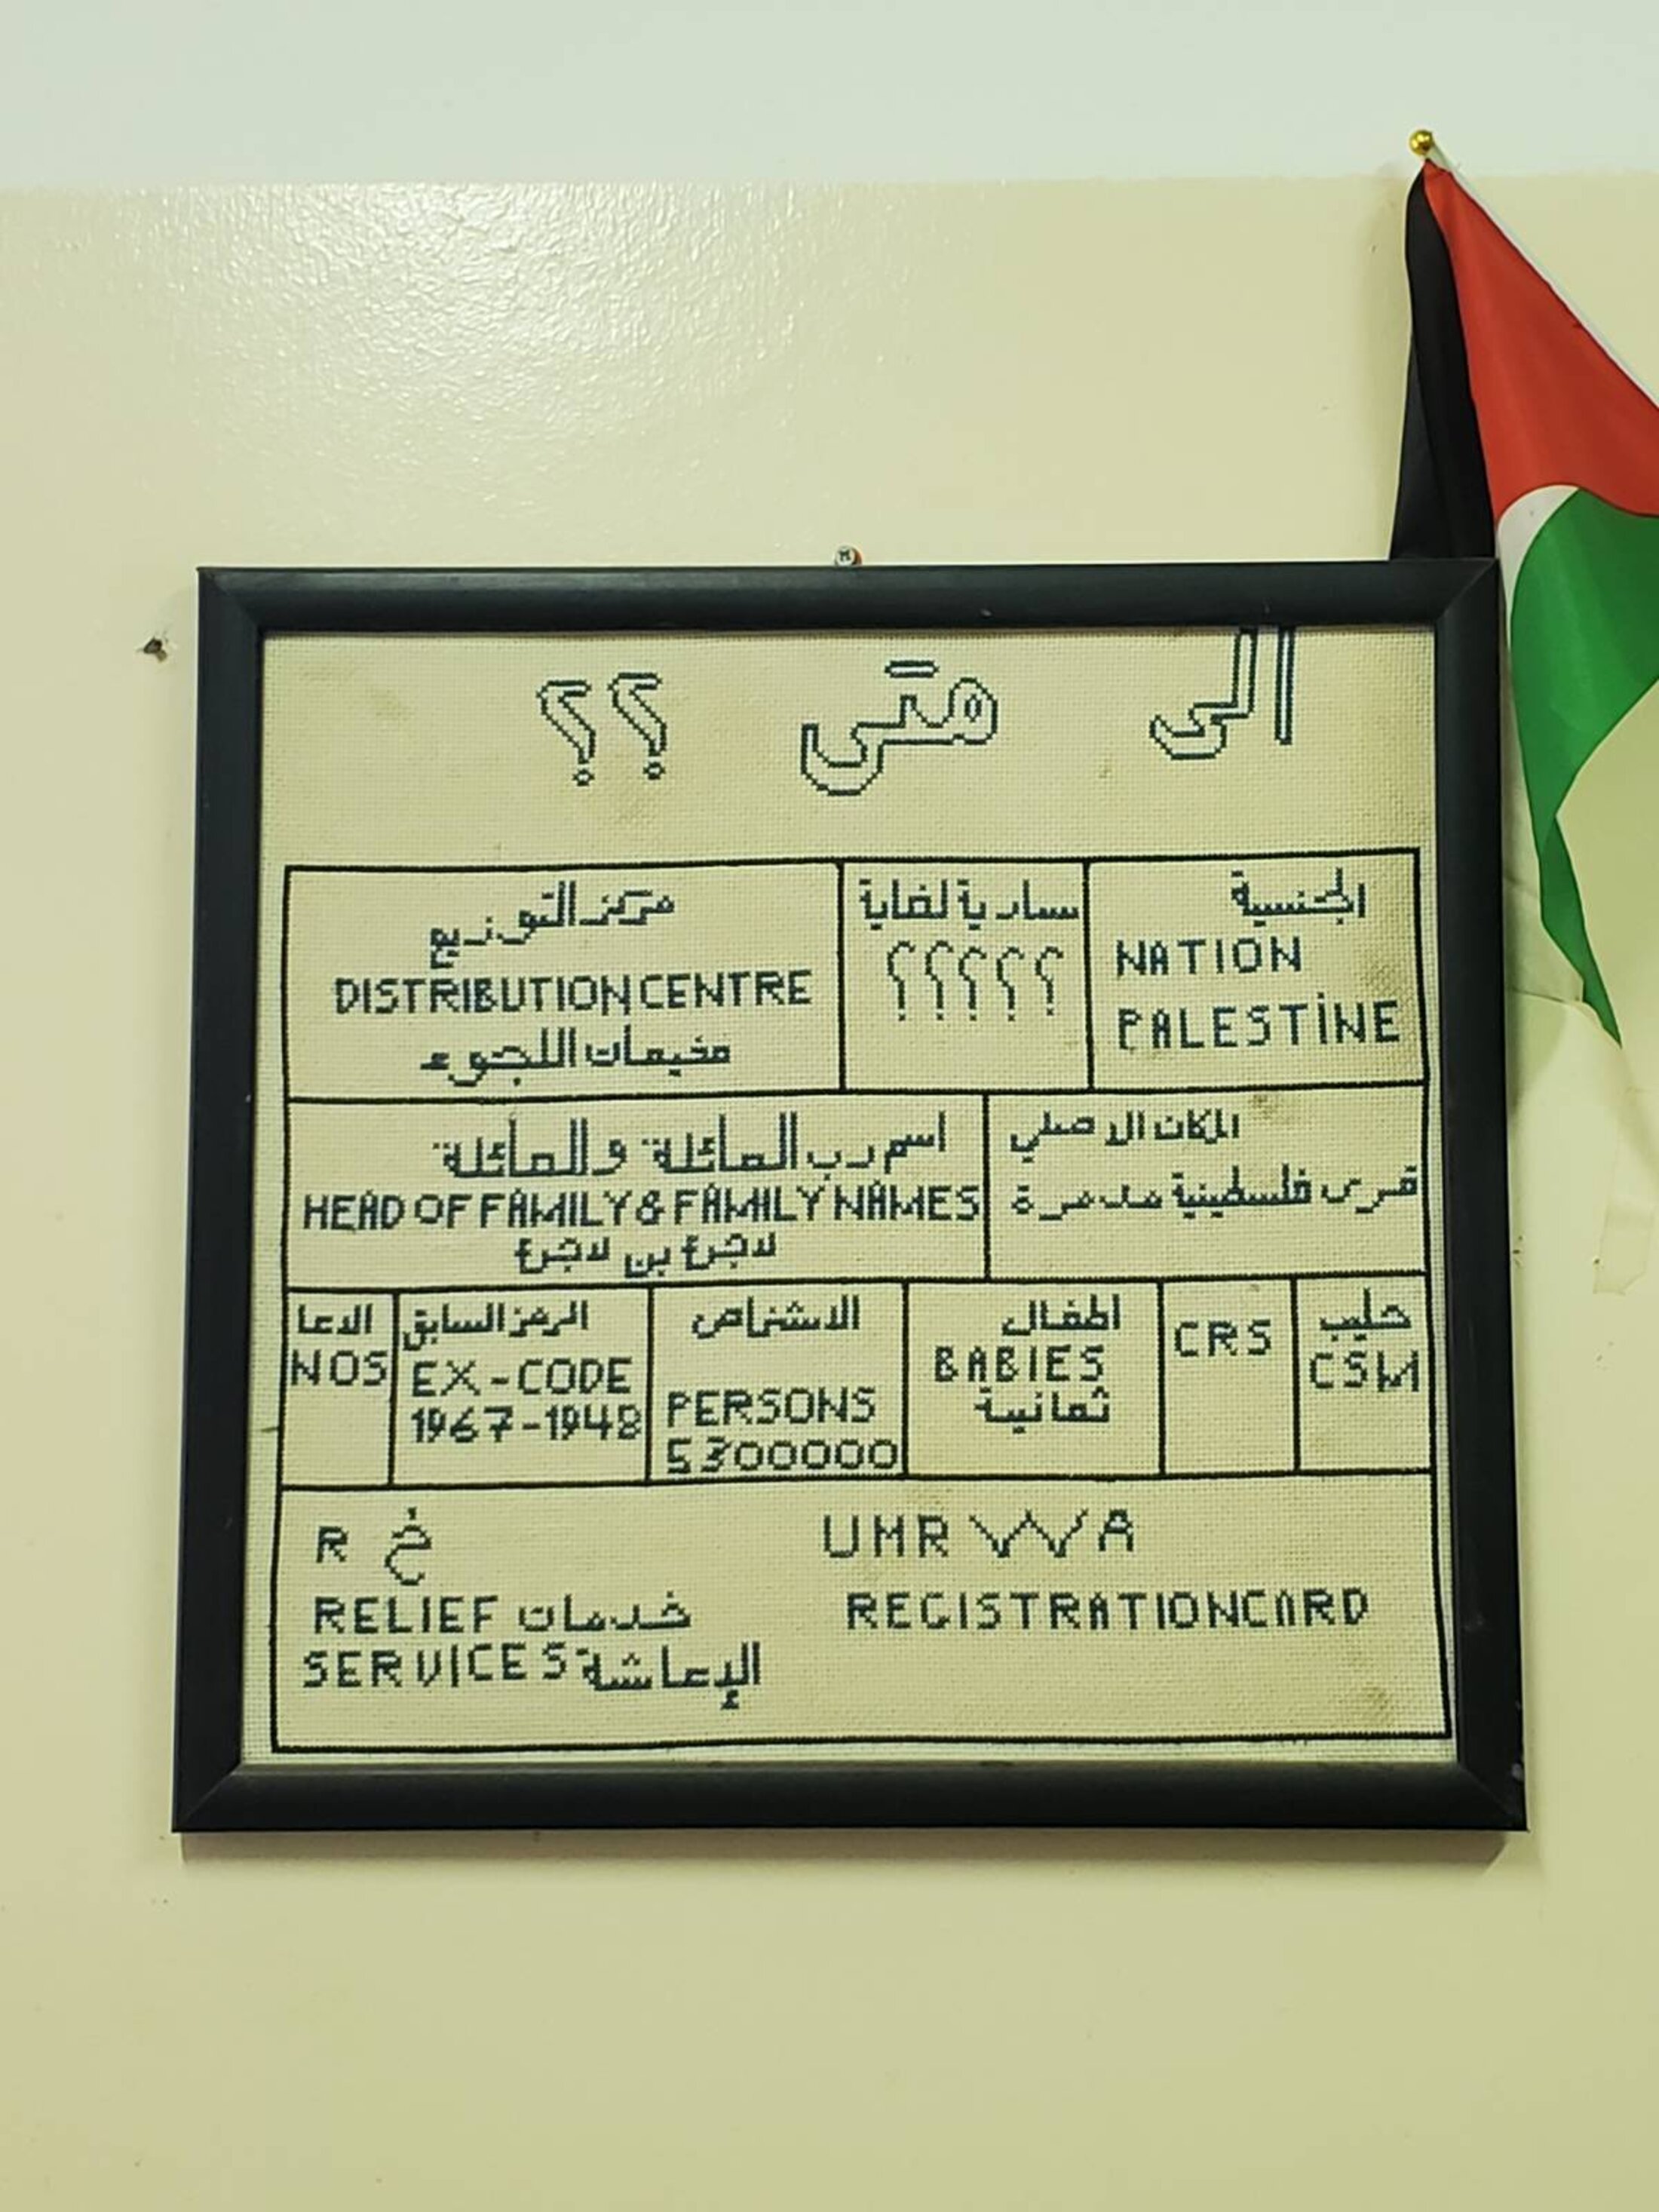 الى متى ؟؟
الجنسية
NATION
PALESTINE
سارية لغاية
؟؟؟؟؟
مركز التوزيع
DISTRIBUTION CENTRE
مخيمات اللجوء
المكان الاصلي
قرى فلسطينية مدمرة
اسم رب العائلة والعائلة
HEAD OF FAMILY & FAMILY NAMES
لاجئ بن لاجئ
حليب
CSM
CRS
اطفال
BABIES
ثمانية
الاشخاص
PERSONS
5300000
الرمز السابق
EX-CODE
1967-1948
الاعا
NOS
R خ
RELIEF خدمات
SERVICES الإعاشة
UNRWA
REGISTRATION CARD